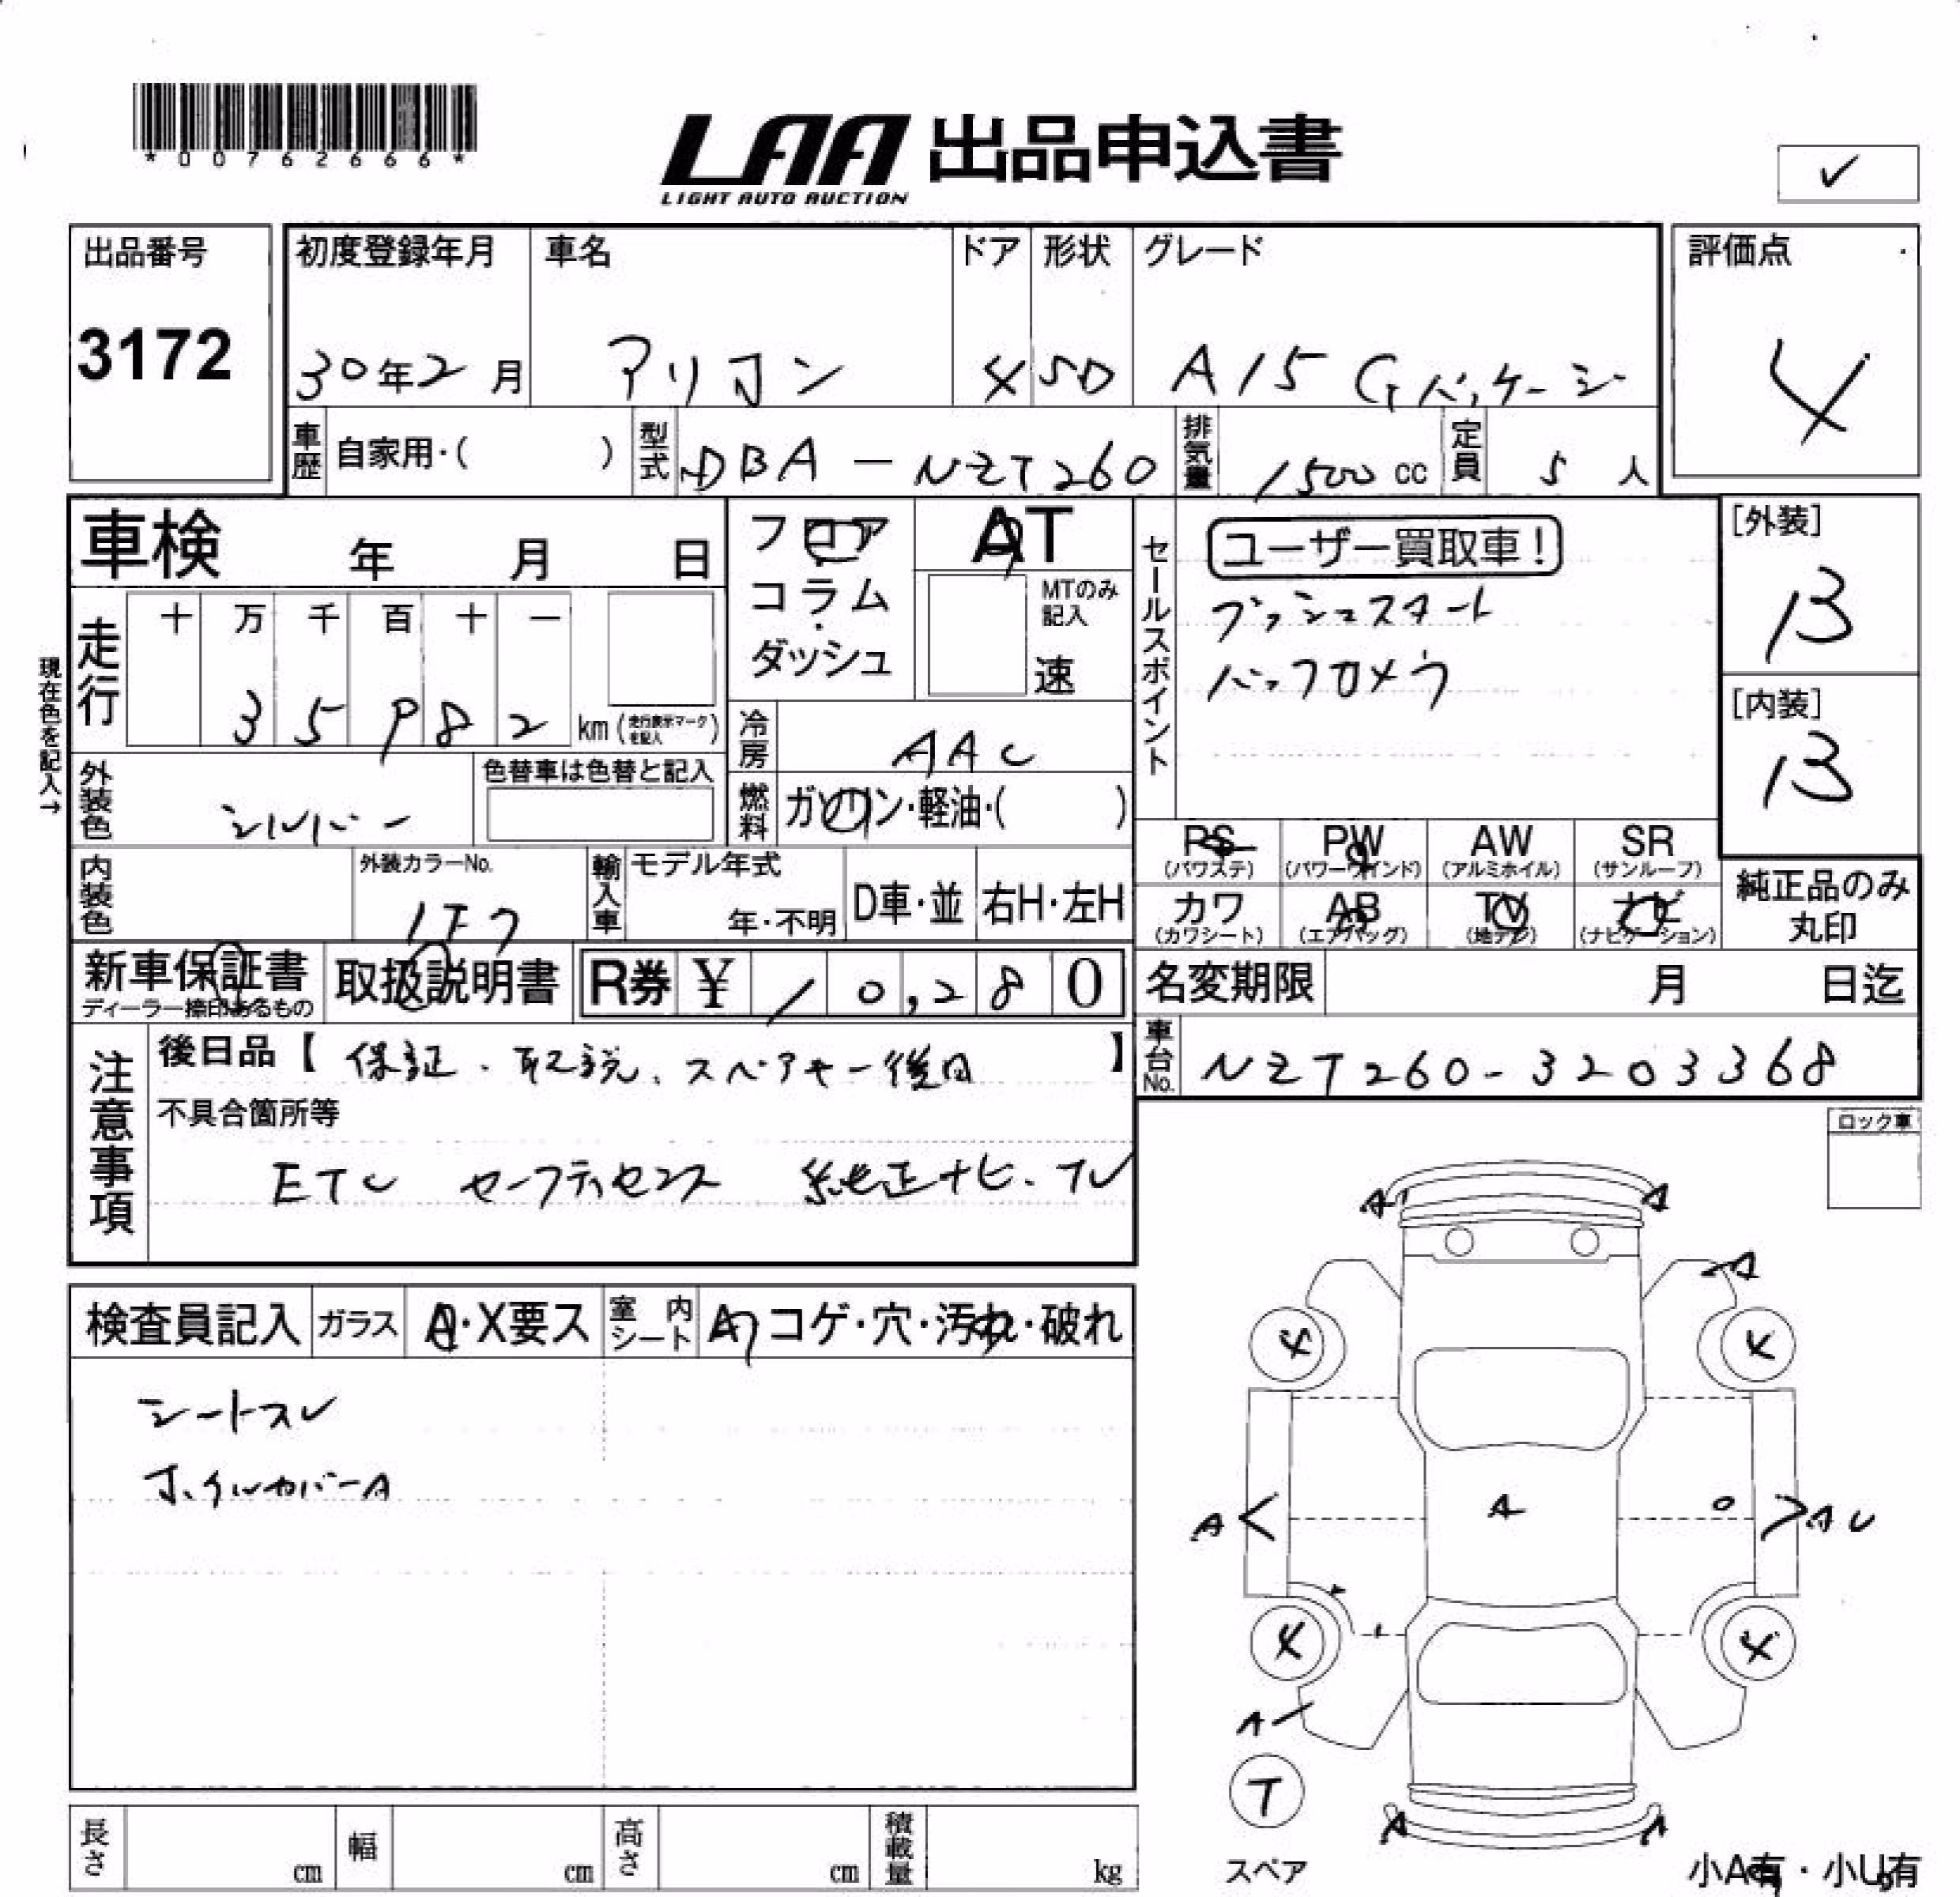 *00762666*
LAA 出品申込書
LIGHT AUTO AUCTION
✓
出品番号
3172
初度登録年月
30年2月
車名
アリオン
ドア
4
形状
SD
グレード
A15 Gパッケージ
評価点
4
車歴
自家用・( )
型式
DBA-NZT260
排気量
1500 cc
定員
5人
車検 年 月 日
フロア
コラム
・
ダッシュ
AT
MTのみ
記入
速
セールスポイント
ユーザー買取車!
プッシュスタート
バックカメラ
[外装]
B
[内装]
B
現在色を記入→
走行
十 万 千 百 十 一
3 5 9 8 2 km(走行表示マークを記入)
冷房
AAC
外装色
シルバー
色替車は色替と記入
燃料
ガソリン・軽油・( )
PS
(パワステ)
PW
(パワーウインド)
AW
(アルミホイル)
SR
(サンルーフ)
カワ
(カワシート)
AB
(エアバッグ)
TV
(地デジ)
ナビ
(ナビゲーション)
純正品のみ
丸印
内装色
外装カラーNo.
1F7
輸入車
モデル年式
年・不明
D車・並
右H・左H
新車保証書
ディーラー捺印あるもの
取扱説明書
R券 ¥ 10,280
名変期限 月 日迄
車台No.
NZT260-3203368
注意事項
後日品【 保証、取説、スペアキー後日 】
不具合箇所等
ETC セーフティセンス 純正ナビ、TV
ロック車
検査員記入
ガラス
A・X要ス
室内シート
A コゲ・穴・汚れ・破れ
シートスレ
ホイルカバーA
A A
A
4 4
A A A U
4 4
A
T
スペア
A A
小A有・小U有
長さ cm
幅 cm
高さ cm
積載量 kg